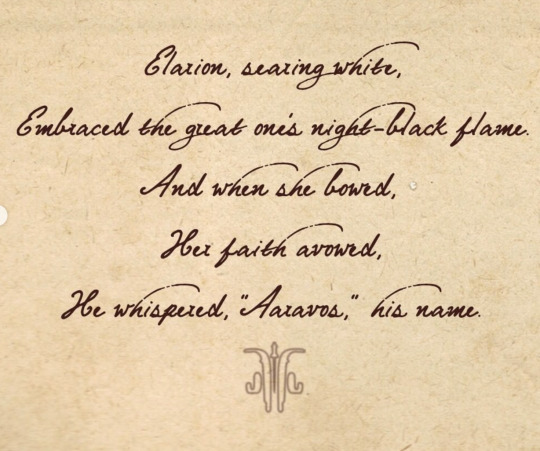 Elarion, searing white,
Embraced the great one's night-black flame.
And when she bowed,
Her faith avowed,
He whispered, "Aaravos," his name.